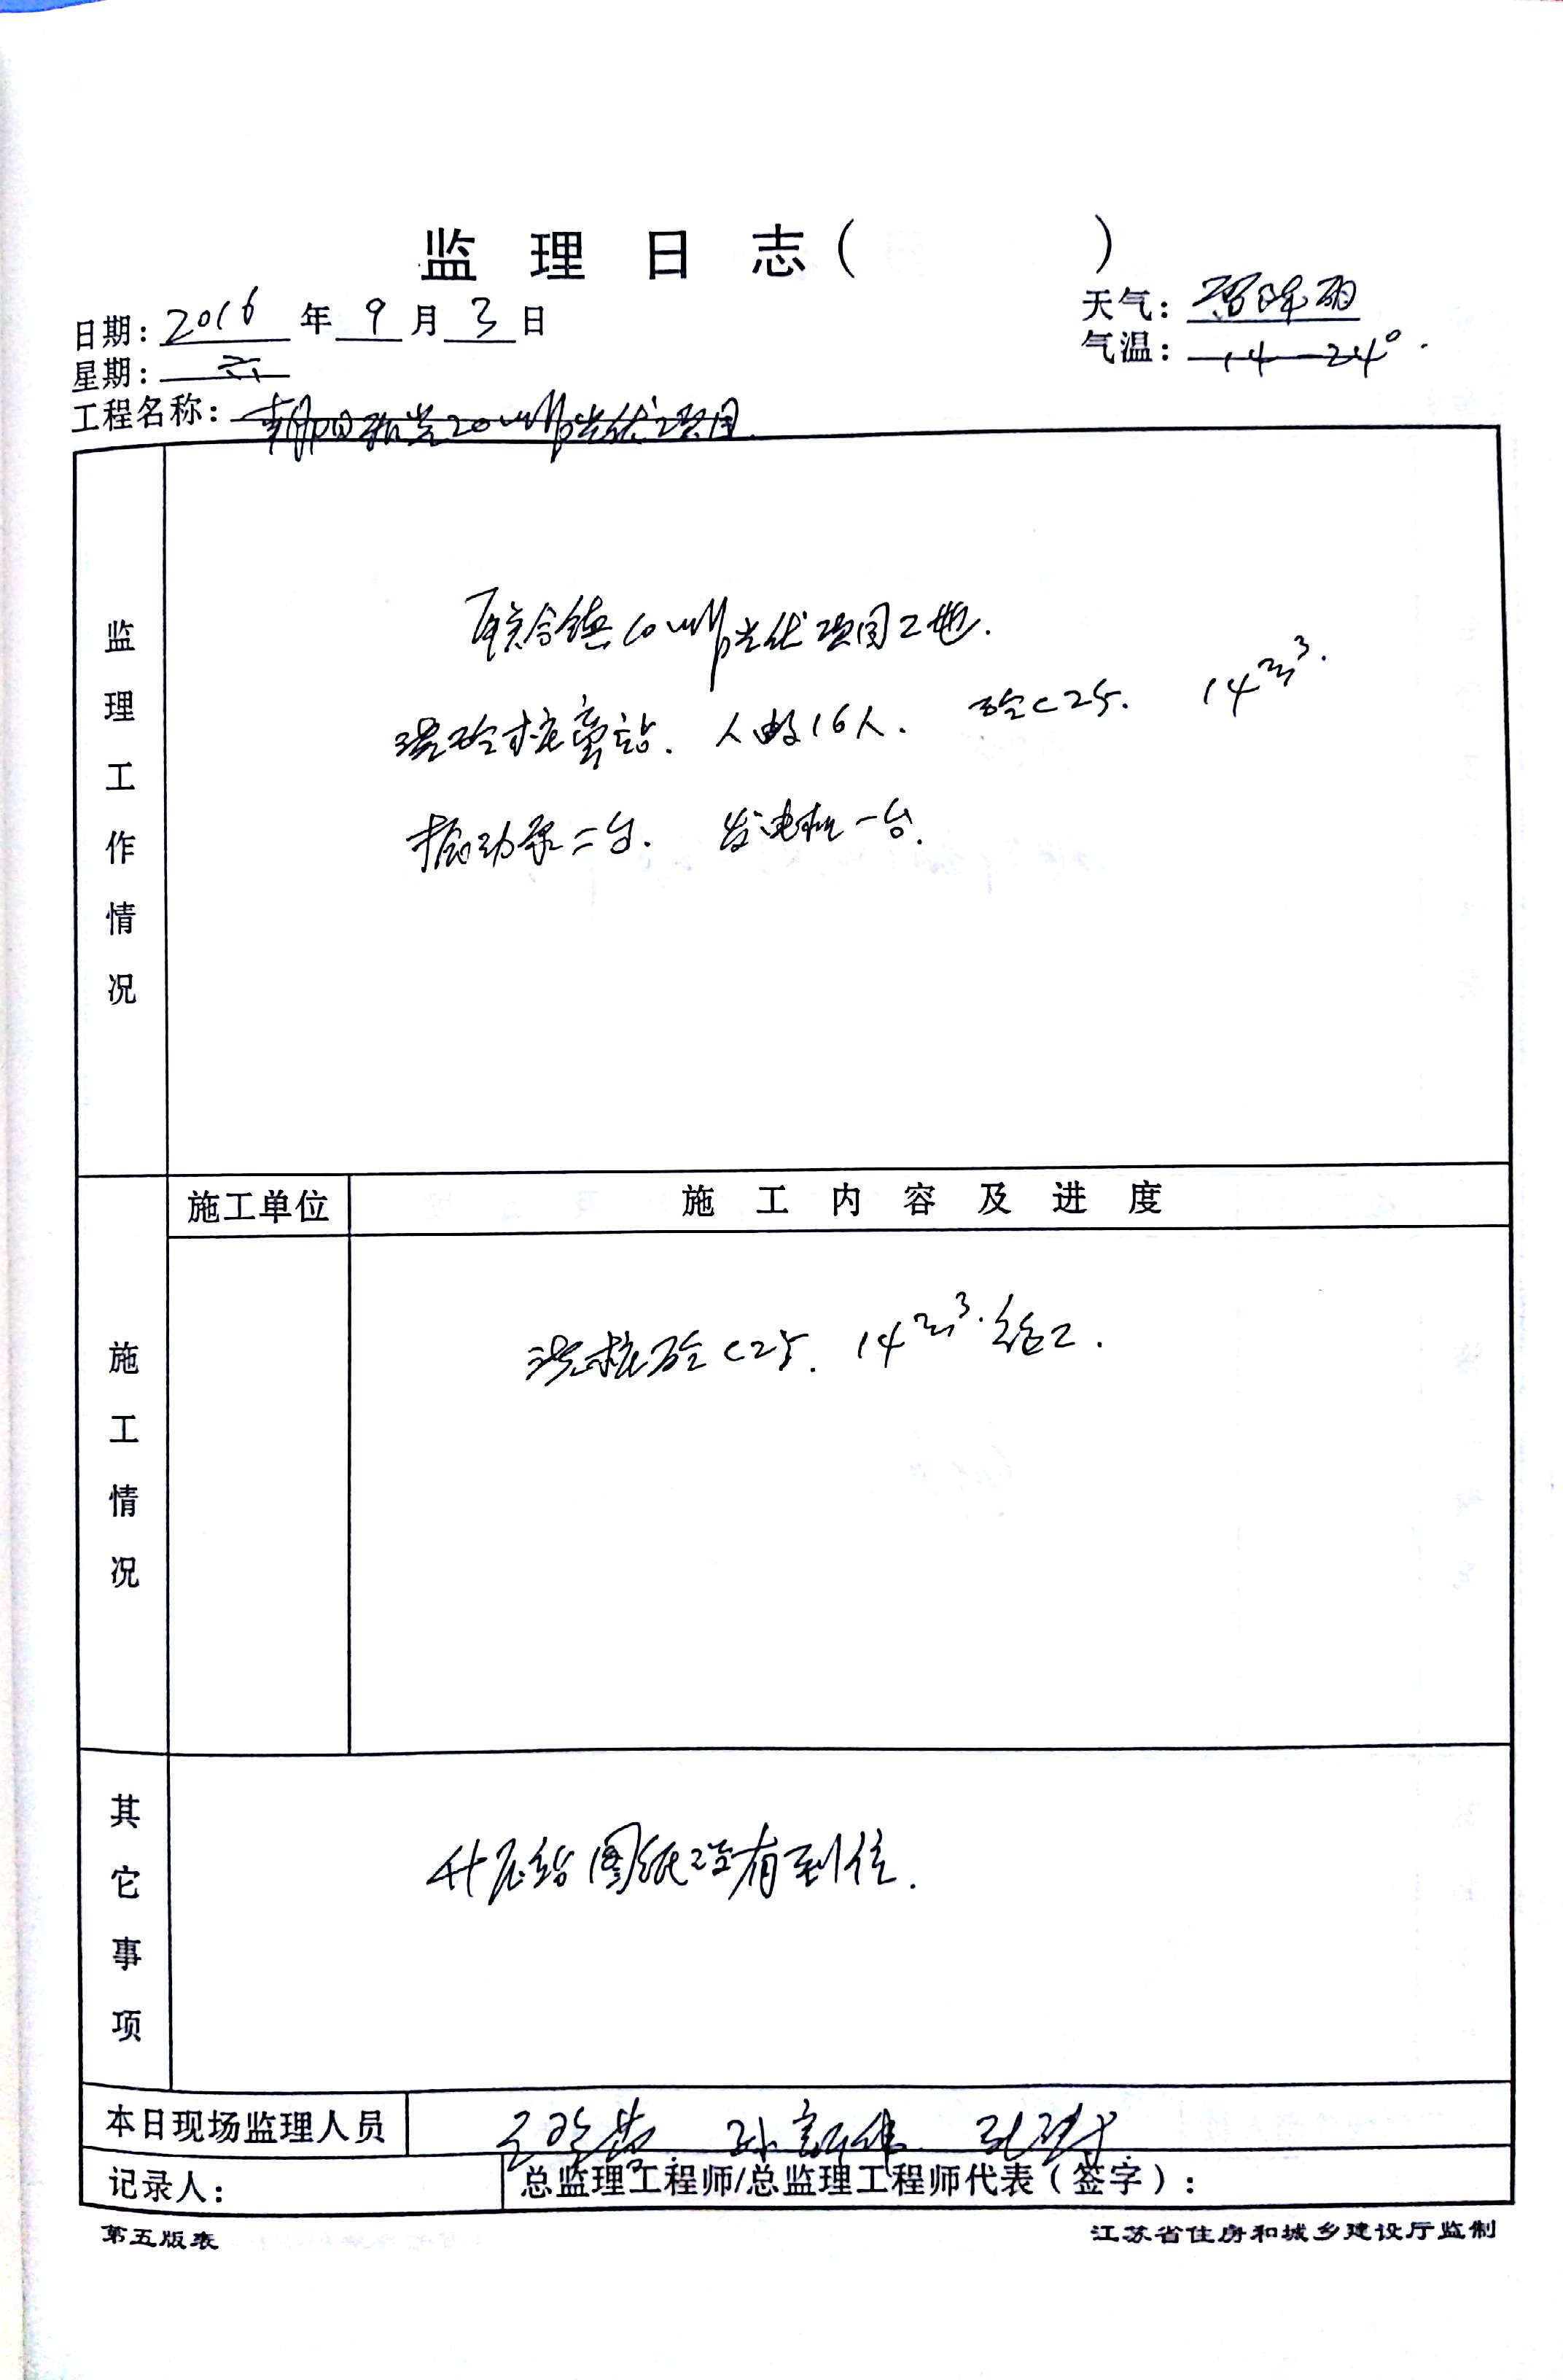 监理日志( )
日期:2016年9月3日 天气:阵雨
星期:六 气温:14-24°.
工程名称:朝日振光20MWp光伏项目
监理工作情况
联合镇10MWp光伏项目工地.
混砼柱旁站. 人数16人. 砼C25. 14m³.
振动泵二台. 发电机一台.
施工单位 施工内容及进度
施工情况
浇桩砼C25. 14m³. 结工.
其它事项
升压站图纸没有到位.
本日现场监理人员 孙新伟
记录人: 总监理工程师/总监理工程师代表(签字):
第五版表 江苏省住房和城乡建设厅监制